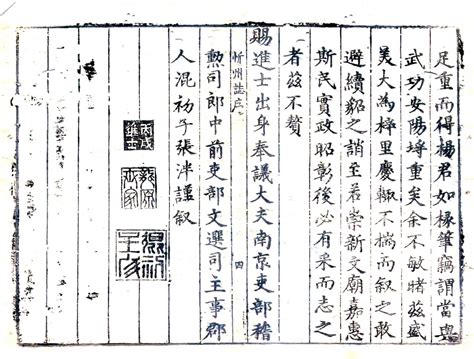 足重而得楊君如椽筆竊謂當與
武功安陽埒重矣余不敏睹茲盛
美大為梓里慶輒不揣而叙之敢
避續貂之誚至若崇新文廟嘉惠
斯民實政昭彰後必有采而志之
者茲不贅
忻州誌序
四
賜進士出身奉議大夫南京吏部稽
勳司郎中前吏部文選司主事郡
人混初子張泮謹叙
丙戌進士